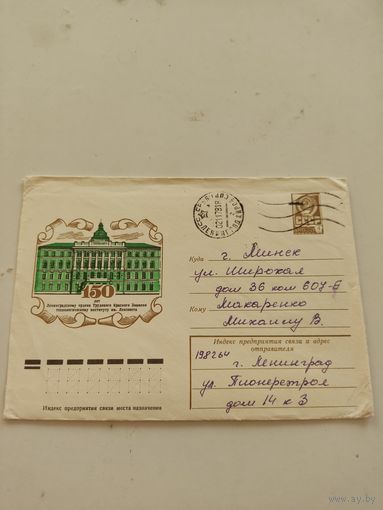 Куда г. Минск
ул. Широкая
дом 36 ком 607-Б
Кому Макаренко
Михаилу В.
150
лет
Ленинградскому ордена Трудового Красного Знамени
технологическому институту им. Ленсовета
Индекс предприятия связи и адрес
отправителя
198264
г. Ленинград
ул. Пионерстроя
дом 14 к 3
Индекс предприятия связи места назначения
ay.by